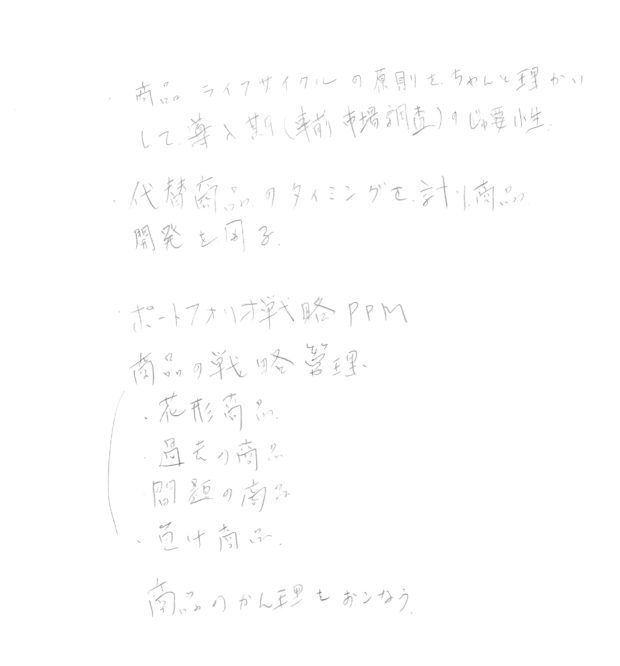 ・商品ライフサイクルの原則を、ちゃんと理かい
して、導入期(事前市場調査)のじゅ要性。
・代替商品のタイミングを計り、商品
開発を図る。
・ポートフォリオ戦略PPM
商品の戦略管理。
・花形商品
・過去の商品
問題の商品
・負け商品。
商品のかん理をおこなう。